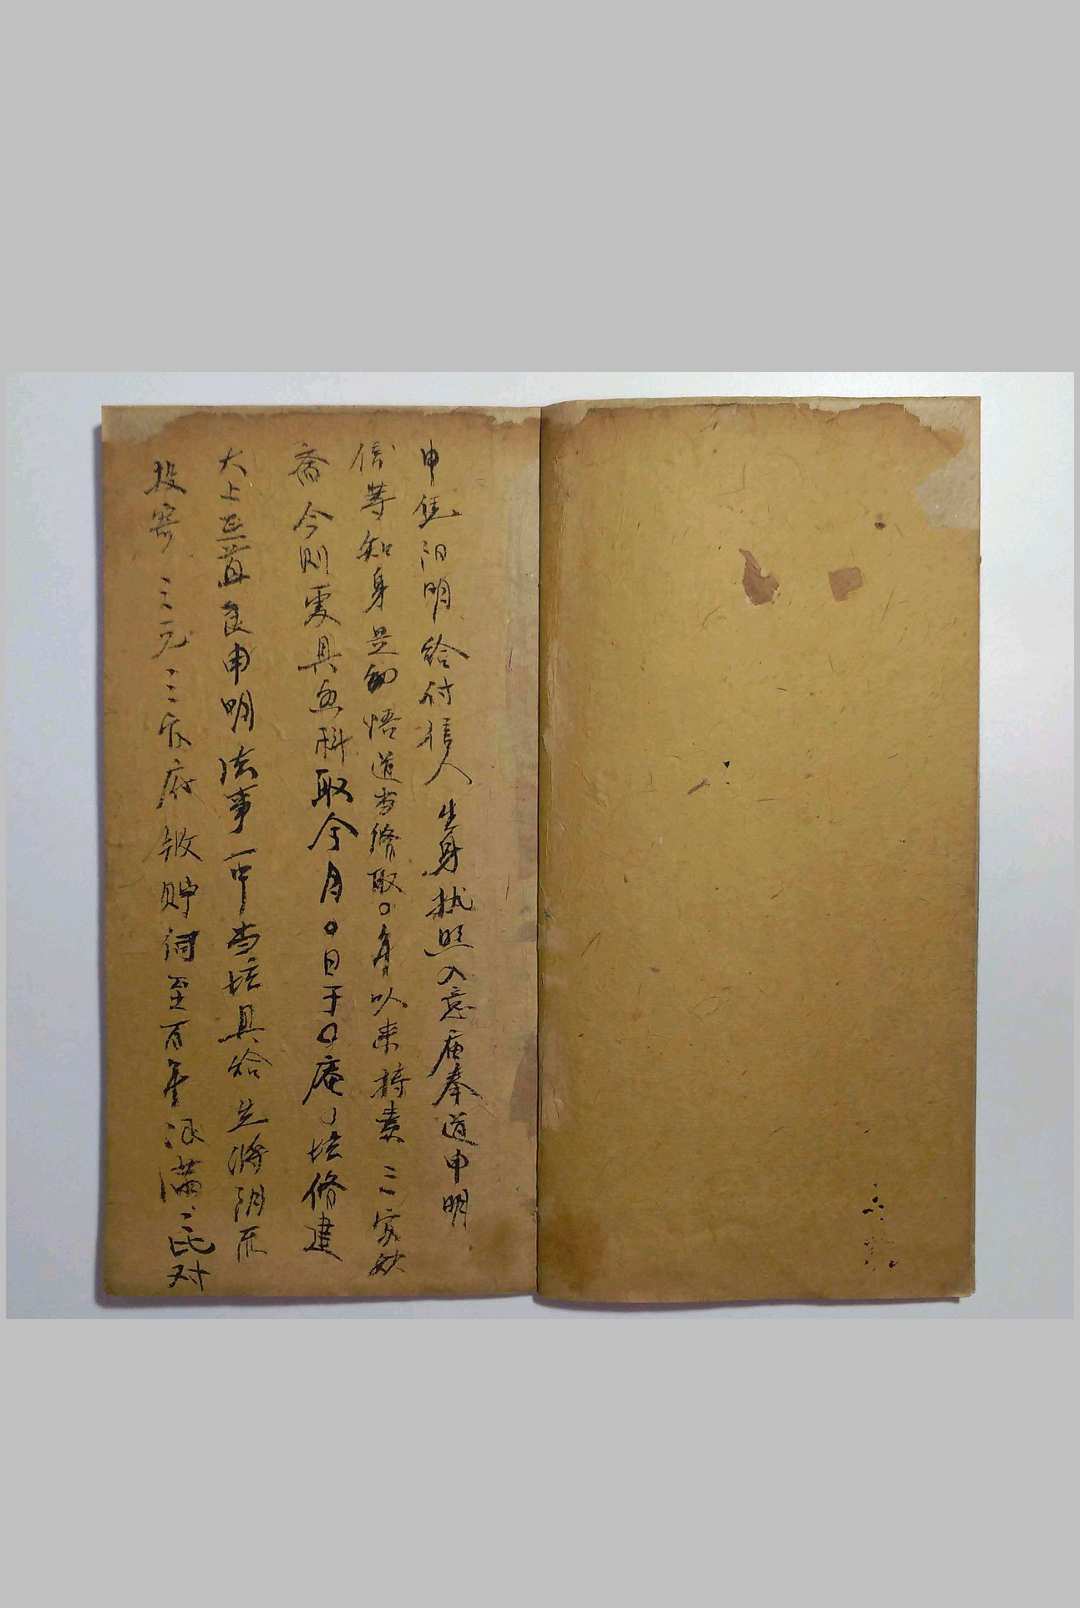 申凭阳明给付 人生身执照入意庙奉道申明
信等知身是幻悟道当修取○年以来持素三官妙
斋今则虔具 科取今月○日于○庵○坛修建
大上 首良申明法事一中当坛具给生将阴
投寄三元三官府 贮词至百年 满 对